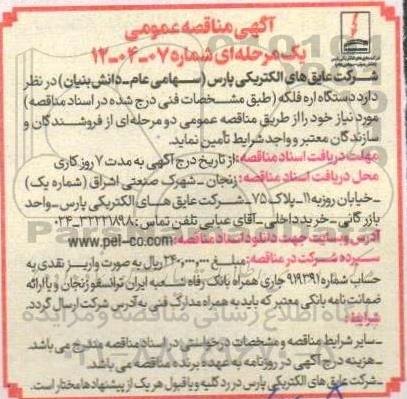 آگهی مناقصه عمومی
یک مرحله‌ای شماره ۰۷-۰۴-۱۲
شرکت عایق های الکتریکی پارس (سهامی عام-دانش بنیان) در نظر
دارد دستگاه اره فلکه (طبق مشخصات فنی درج شده در اسناد مناقصه)
مورد نیاز خود را از طریق مناقصه عمومی دو مرحله ای از فروشندگان و
سازندگان معتبر و واجد شرایط تأمین نماید.
مهلت دریافت اسناد مناقصه: از تاریخ درج آگهی به مدت ۷ روز کاری
محل دریافت اسناد مناقصه: زنجان - شهرک صنعتی اشراق (شماره یک)
-خیابان روزبه ۱۱-پلاک ۷۵-شرکت عایق های الکتریکی پارس-واحد
بازرگانی - خرید داخلی - آقای عبایی تلفن تماس: ۳۲۲۲۱۸۹۸-۰۲۴
آدرس وبسایت جهت دانلود اسناد مناقصه: www.pei-co.com
سپرده شرکت در مناقصه: مبلغ ۲۴۰,۰۰۰,۰۰۰ ریال به صورت واریز نقدی به
حساب شماره ۹۱۹۳۹۱ جاری همراه بانک رفاه شعبه ایران ترانسفو زنجان و یا ارائه
ضمانت نامه بانکی معتبر که باید به همراه مدارک فنی به آدرس شرکت ارسال گردد.
شرایط:
-سایر شرایط مناقصه و مشخصات درخواستی در اسناد مناقصه مندرج می باشد.
-هزینه درج آگهی در روزنامه به عهده برنده مناقصه می باشد.
-شرکت عایق های الکتریکی پارس در رد کلیه و یا قبول هر یک از پیشنهادها مختار است.